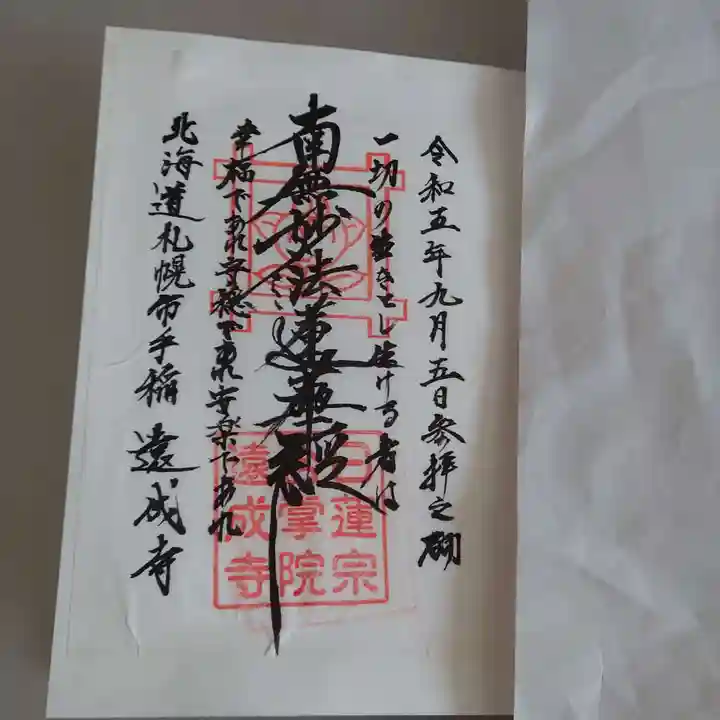 令和五年九月五日参拝之砌
一切の生きとし生ける者は
南無妙法蓮華経
幸福であれ安穏であれ安楽であれ
北海道札幌市手稲 遠成寺
日蓮宗
掌院
遠成寺